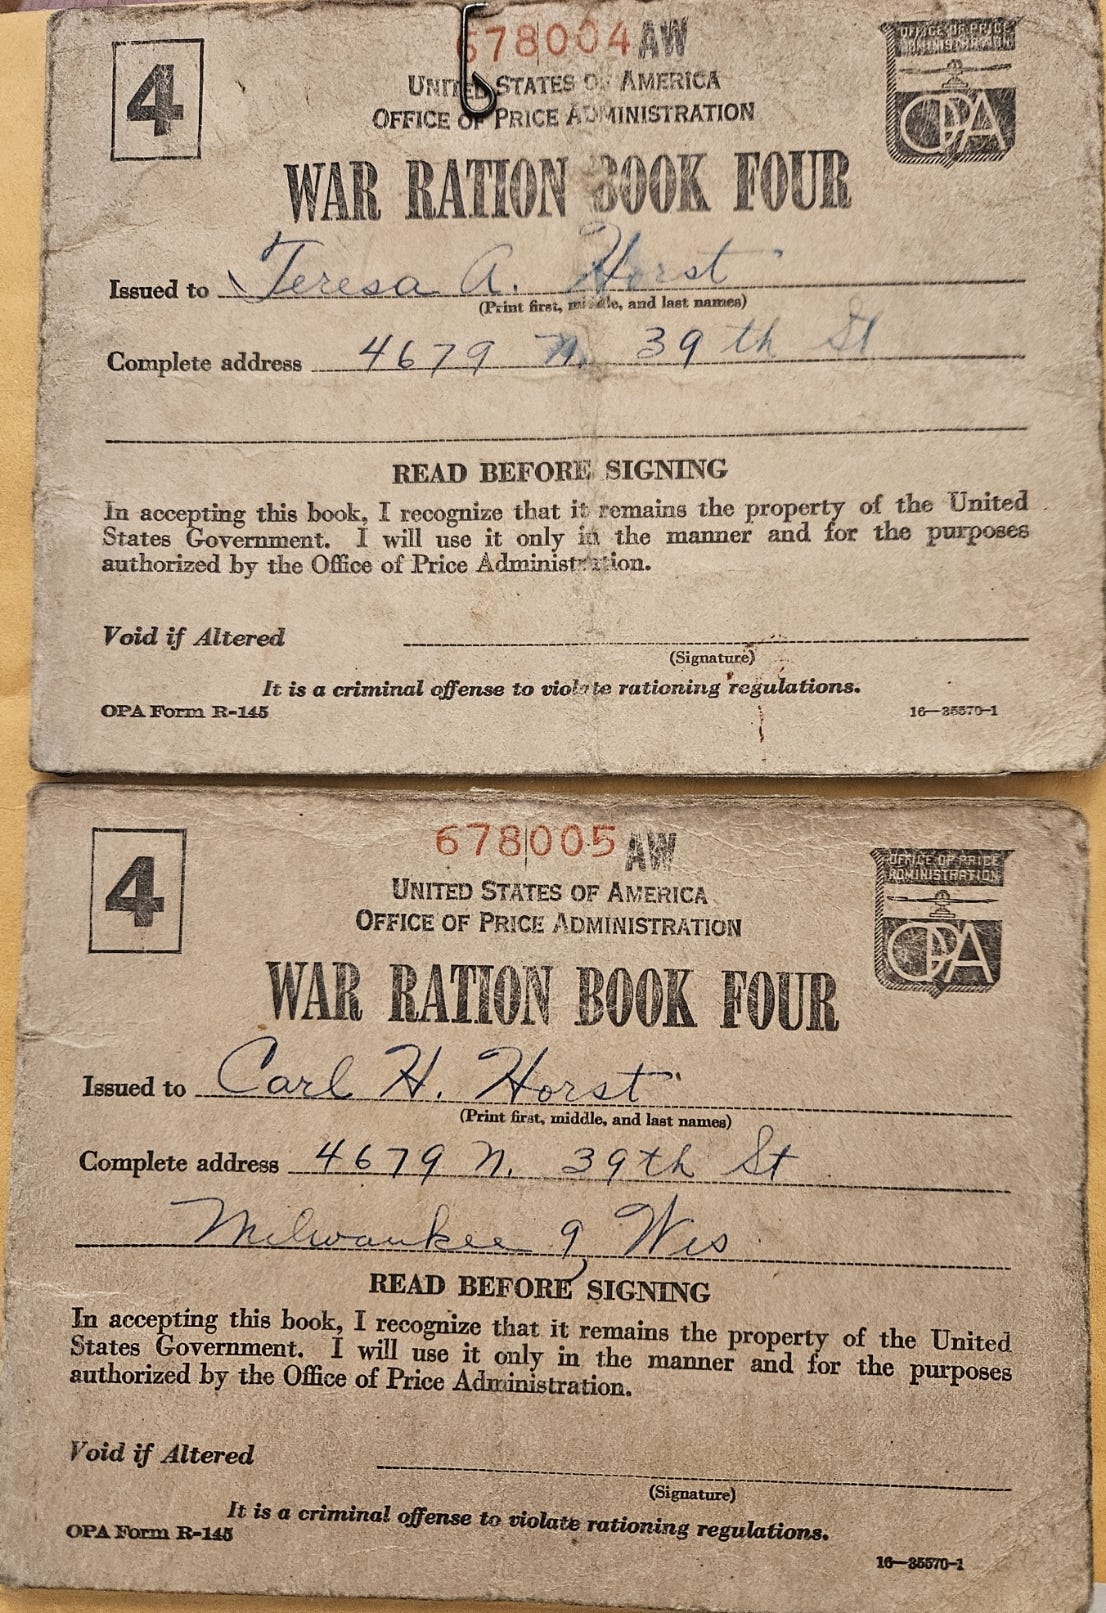 4
678004 AW
OFFICE OF PRICE
ADMINISTRATION
OPA
UNITED STATES OF AMERICA
OFFICE OF PRICE ADMINISTRATION
WAR RATION BOOK FOUR
Issued to Teresa A. Horst
(Print first, middle, and last names)
Complete address 4679 N. 39th St
READ BEFORE SIGNING
In accepting this book, I recognize that it remains the property of the United
States Government. I will use it only in the manner and for the purposes
authorized by the Office of Price Administration.
Void if Altered
(Signature)
It is a criminal offense to violate rationing regulations.
OPA Form R-145
16—35570-1
4
678005 AW
OFFICE OF PRICE
ADMINISTRATION
OPA
UNITED STATES OF AMERICA
OFFICE OF PRICE ADMINISTRATION
WAR RATION BOOK FOUR
Issued to Carl H. Horst
(Print first, middle, and last names)
Complete address 4679 N. 39th St
Milwaukee 9, Wis
READ BEFORE SIGNING
In accepting this book, I recognize that it remains the property of the United
States Government. I will use it only in the manner and for the purposes
authorized by the Office of Price Administration.
Void if Altered
(Signature)
It is a criminal offense to violate rationing regulations.
OPA Form R-145
16—35570-1